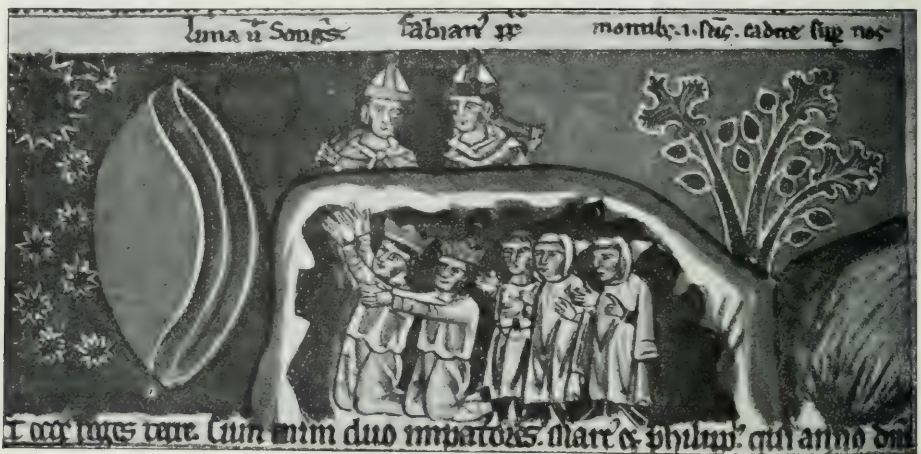 luna ũ Songẽs fabian⁹ pp̃ montib₃ .i. sũc. cadite sup nos
reges terre. Cum enim duo impatores. Marc⁹ & philipp⁹ qui anno dñi